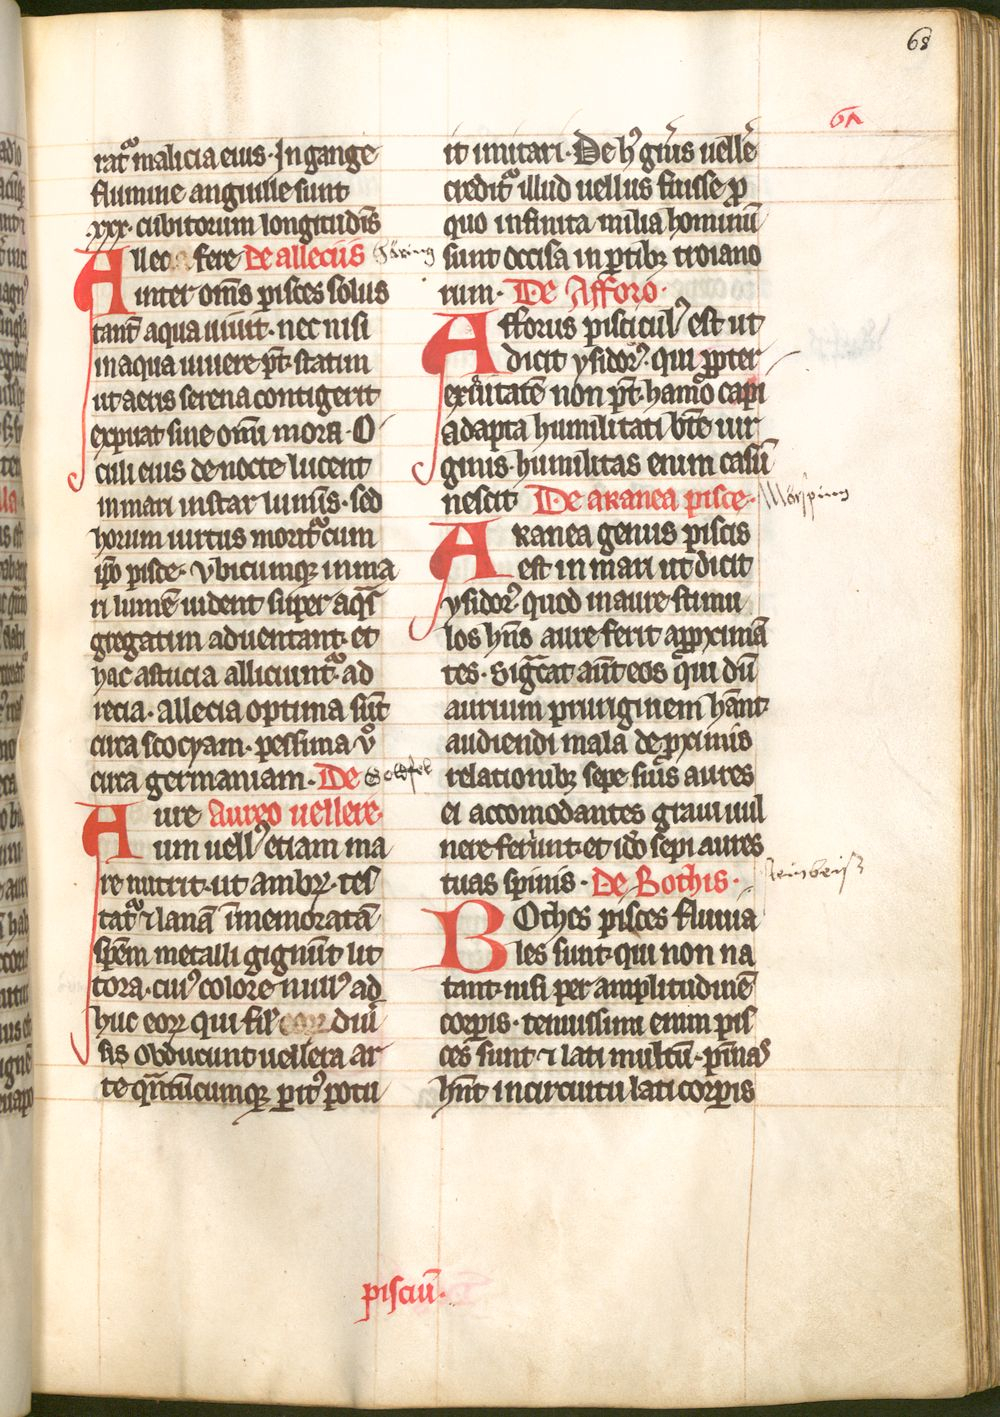 68
61
rat᷑ malicia eius. In gange
flumine anguille sunt
xxx. cubitorum longitudīs
Alleo fere De alleciis Häring
inter om̄s pisces solus
tant᷑ aqua uiuit. nec nisi
in aqua uiuere pt̄. statim
ut aeris serena contigerit
expirat sine omī mora. O
culi eius de nocte lucent
in mari instar lumīs. sed
horum uirtus morit᷑ cum
ip̄o pisce. vbicumqꝫ in ma
ri lumē uident super aq̄s
gregatim aduentant. et
hac astucia alliciunt᷑ ad
recia. allecia optima sūt
circa scocyam. pessima v̊
circa germaniam. De
Aure Aureo uellere.
um uell᷒ etiam ma
re nutrit. ut ambꝝ. tes
tat᷑ ⁊ lanā īmemoratā
spēm metalli gignūt lit
tora. cui᷒ colorē null᷒ ad
huc eoꝝ qui fil᷒ diu
sis obducunt uellera ar
te qn̄tūcumqꝫ ꝑit᷒ potu
it imitari. De h᷒ gn̄is uelle᷒
credit᷑ illud uellus fuisse ꝓ
quo infinita milia hominū
sunt occisa in ꝑtibꝫ troiano
rum. De Afforo.
Afforus piscicul᷒ est ut
dicit ysidor᷒. qui ꝓpter
exiguitatē non pt̄. hamo capi
adapta humilitati bt̄e uir
ginis. humilitas enim casū
nescit De aranea pisce.
Aranea genus piscis
est in mari ut dicit
ysidor᷒. quod in aure stimu
los hn̄s aure ferit aꝓpximā
tes. Sigᷓcat aūt eos qui dū
aurium pruriginem hānt
audiendi mala de ꝓximis
relationibꝫ sepe suis aures
ei accomodantes graui uul
nere feriūt. et idō sepi aures
tuas spinis. De Bothis.
Bothes pisces fluuia
les sunt. qui non na
tant nisi per amplitudinē
corꝑis. tenuissimi enim pis
ces sunt ⁊ lati multū. pinnas
hn̄t in circuitu lati corꝑis
pisciū.